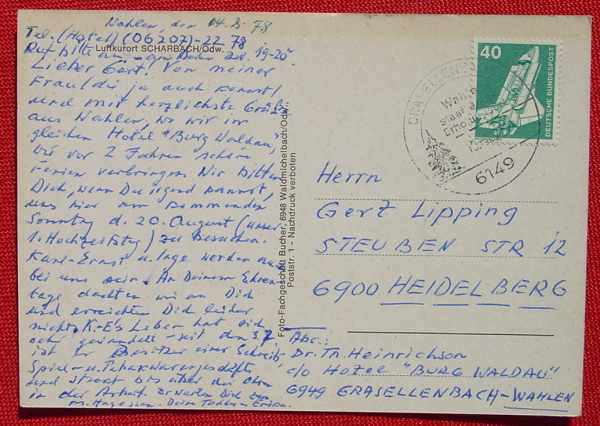 Wahlen, den 14.8.78
Tel. (Hotel) (06207)-22 78
Luftkurort SCHARBACH/Odw.
Ruf bitte an 19-20
Lieber Gert! Von meiner
Frau, die ja auch kennst,
sind mit herzlichste Grüße
aus Wahlen, wo wir im
gleichen Hotel "Burg Waldau",
wie vor 2 Jahren schon
Ferien verbringen. Wir bitten
Dich, wenn Du irgend kannst,
uns hier am kommenden
Sonntag d. 20. August (unser
1. Hochzeitstag) zu besuchen.
Karl-Ernst u. Inge werden
bei uns sein. An Deinem Ehren-
tage dachten wir an Dich
und erreichten Dich leider
nicht. K-E's Leben hat sich
sehr gewandelt - seit dem 3.7.
ist er Besitzer einer Schreib-,
Spiel- u. Tabakwarengeschäfts
und steckt bis über die Ohren
in der Arbeit.
Foto-Fachgeschäft Bucher, 6948 Waldmichelbach/Odw.,
Poststr. 1 - Nachdruck verboten
40
DEUTSCHE BUNDESPOST
GRASELLENBACH
6149
Herrn
Gert Lipping
STEUBEN STR 12
6900 HEIDELBERG
Abs.:
Dr. Th. Heinrichson
c/o Hotel "BURG WALDAU"
6949 GRASELLENBACH-WAHLEN